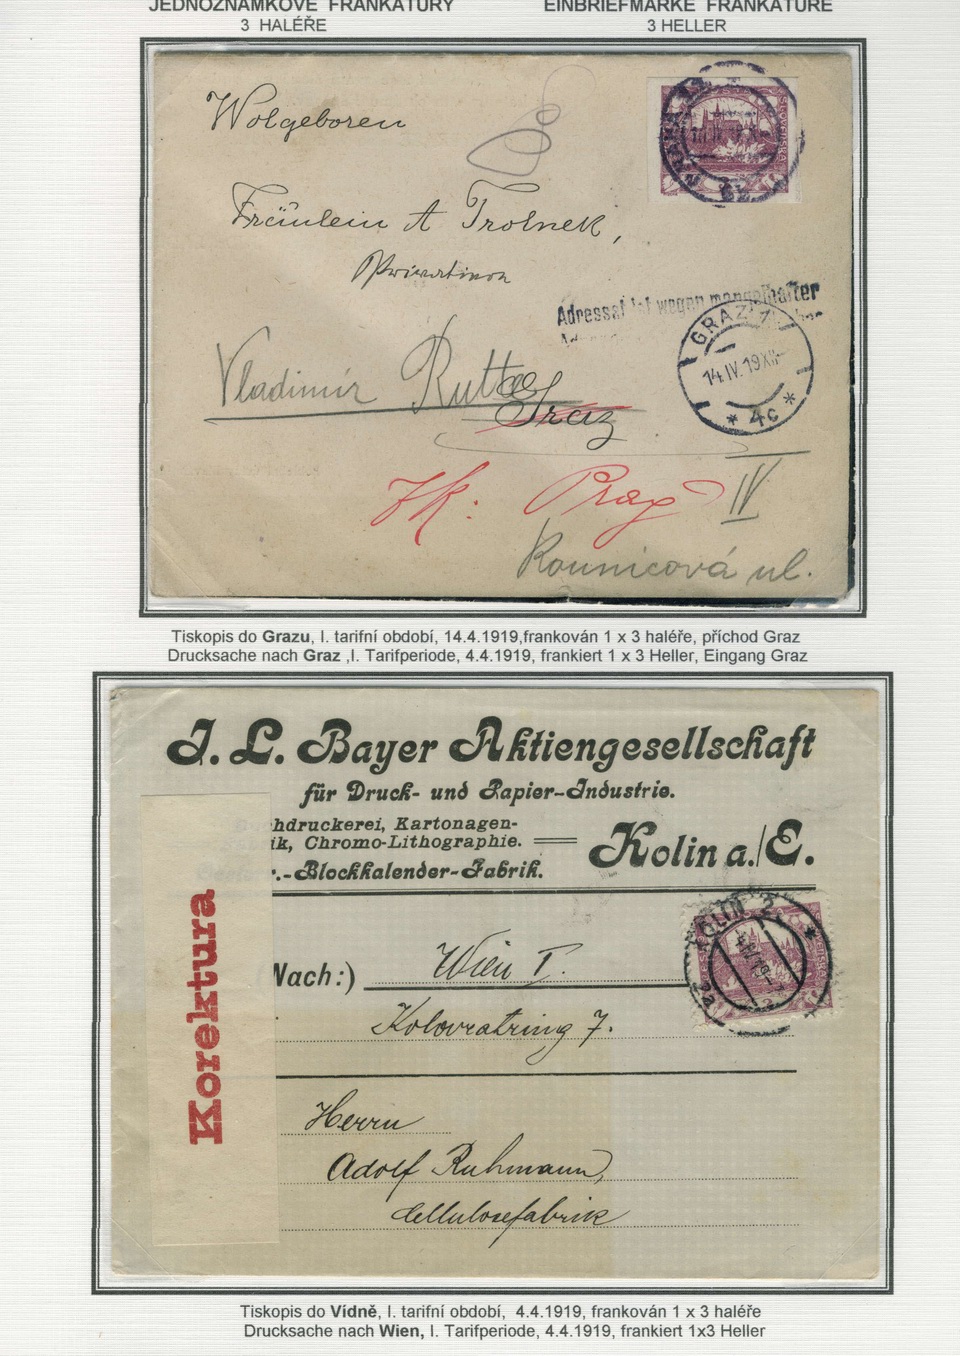 JEDNOZNÁMKOVÉ FRANKATURY
3 HALÉŘE
EINBRIEFMARKE FRANKATURE
3 HELLER
Wolgeboren
Fräulein A Trolnek,
Vladimír Rutte
Graz
Adressat ist wegen mangelhafter
GRAZ 1
14.IV.19 XII
* 4c *
Zk: Prag IV
Kounicová ul.
Tiskopis do Grazu, I. tarifní období, 14.4.1919,frankován 1 x 3 haléře, příchod Graz
Drucksache nach Graz ,I. Tarifperiode, 4.4.1919, frankiert 1 x 3 Heller, Eingang Graz
J. L. Bayer Aktiengesellschaft
für Druck- und Papier-Industrie.
hdruckerei, Kartonagen-
ik, Chromo-Lithographie.
r.-Blockkalender-Fabrik.
Kolin a./E.
Korektura
KOLIN 2
(Nach:) Wien I.
Kolowratring 7.
Herrn
Adolf Ruhmann,
Cellulosefabrik
Tiskopis do Vídně, I. tarifní období, 4.4.1919, frankován 1 x 3 haléře
Drucksache nach Wien, I. Tarifperiode, 4.4.1919, frankiert 1x3 Heller